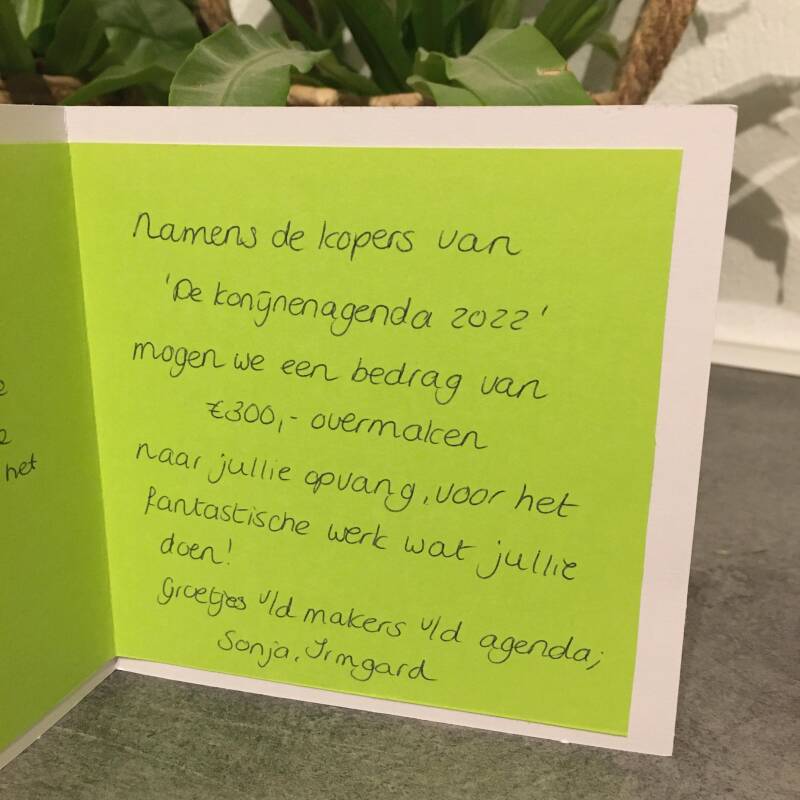 het
Namens de kopers van
'De konijnenagenda 2022'
mogen we een bedrag van
€300,- overmaken
naar jullie opvang, voor het
fantastische werk wat jullie
doen!
Groetjes v/d makers v/d agenda;
Sonja, Irmgard